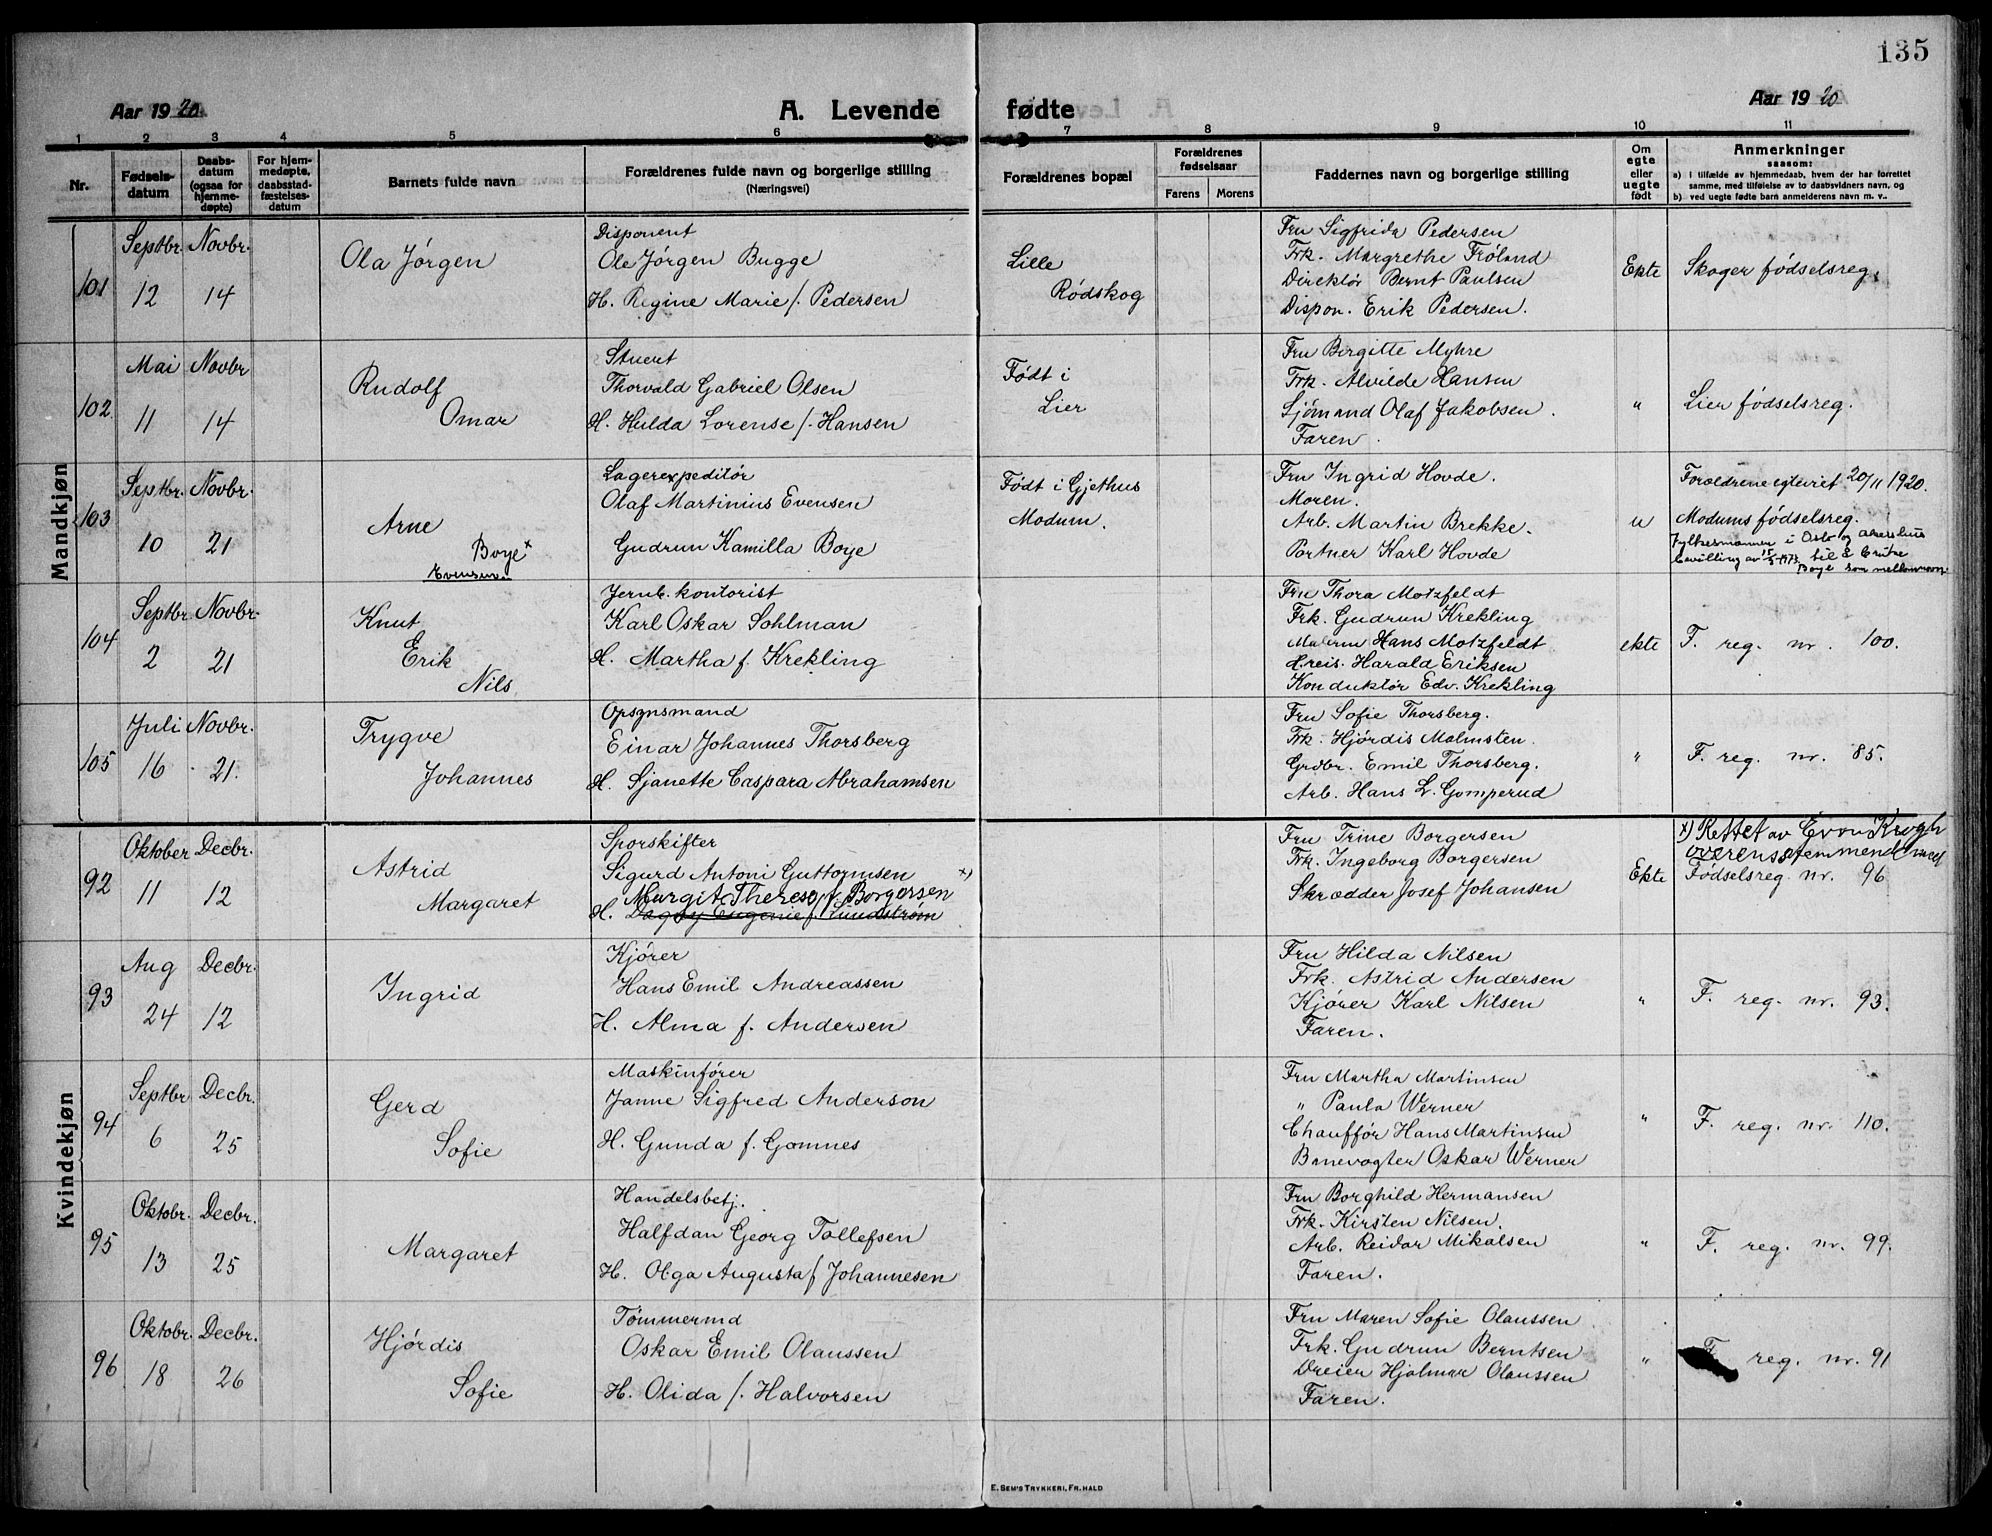 135
Aar 1920.
A. Levende fødte
Aar 1920
1 2 3 4 5 6 7 8 9 10 11
Nr.
Fødsels-
datum
Daabs-
datum
(ogsaa for
hjemme-
døpte)
For hjem-
medøpte,
daabsstad-
fæstelses-
datum
Barnets fulde navn
Forældrenes fulde navn og borgerlige stilling
(Næringsvei)
Forældrenes bopæl
Forældrenes
fødselsaar
Farens Morens
Faddernes navn og borgerlige stilling
Om
egte
eller
uegte
født
Anmerkninger
saasom:
a) i tilfælde av hjemmedaab, hvem der har forrettet
samme, med tilføielse av to daabsvidners navn, og
b) ved uegte fødte barn anmelderens navn m. v..
Mandkjøn
101
Septbr. 12
Novbr. 14
Ola Jørgen
Disponent
Ole Jørgen Bugge
H. Regine Marie f. Pedersen
Lille
Rødskog
Fru Sigfrida Pedersen
Frk. Margrethe Frøland
Direktør Bernt Paulsen
Dispon. Erik Pedersen.
Ekte
Skoger fødselsreg.
102
Mai 11
Novbr 14
Rudolf
Omar
Stuert
Thorvald Gabriel Olsen
H. Hulda Lorense f. Hansen
Født i
Lier
Fru Birgitte Myhre
Frk. Alvilde Hansen
Sjømand Olaf Jakobsen.
Faren.
"
Lier fødselsreg.
103
Septbr. 10
Novbr. 21
Arne
Boye x
Evensen
Lagerexpeditør
Olaf Martinius Evensen
Gudrun Kamilla Boye
Født i Gjethus
Modum.
Fru Ingrid Hovde.
Moren.
Arb. Martin Brekke.
Portner Karl Hovde
u
Forældrene egteviet 20/11 1920.
Modums fødselsreg.
Fylkesmannen i Oslo og Akershus
bevilling av 15/5-1973 til å bruke
Boye som mellomnavn
104
Septbr 2
Novbr. 21
Knut
Erik
Nils
Jernb. kontorist
Karl Oskar Sohlman
H. Martha f. Krekling
Fru Thora Motzfeldt
Frk. Gudrun Krekling
Hans Motzfeldt
Harald Eriksen
Konduktør Edv. Krekling
ekte
F. reg. nr. 100.
105
Juli 16
Novbr. 21.
Trygve
Johannes
Opsynsmand
Einar Johannes Thorsberg
H. Sjanette Caspara Abrahamsen
Fru Sofie Thorsberg.
Frk. Hjørdis Malmsten.
Grdbr. Emil Thorsberg.
Arb. Hans L. Gomperud
"
F. reg. nr. 85.
Kvindekjøn
92
Oktober 11
Decbr. 12
Astrid
Margaret
Sporskifter
Sigurd Antoni Guttormsen x)
Margit Therese f. Borgersen
H. Dagny Eugenie f. Lundstrøm
Fru Trine Borgersen
Frk. Ingeborg Borgersen
Skrædder Josef Johansen
Ekte
x) Rettet av Krogh
overensstemmende med
Fødselsreg. nr. 96
93
Aug 24
Decbr. 12
Ingrid
Kjører
Hans Emil Andreassen
H. Alma f. Andersen
Fru Hilda Nilsen
Frk. Astrid Andersen
Kjører Karl Nilsen
Faren.
"
F. reg. nr. 93.
94
Septbr 6
Decbr. 25
Gerd
Sofie
Maskinfører
Janne Sigfred Anderson
H. Gunda f. Gomnes
Fru Martha Martinsen
" Paula Werner
Chauffør Hans Martinsen
Banevogter Oskar Werner
"
F. reg. nr. 110.
95
Oktobr. 13
Decbr. 25
Margaret
Handelsbetj.
Halfdan Georg Tollefsen
H. Olga Augusta f. Johannesen
Fru Borghild Hermansen
Frk. Kirsten Nilsen.
Arb. Reidar Mikalsen
Faren.
"
F. reg. nr. 99.
96
Oktobr. 18
Decbr. 26
Hjørdis
Sofie
Tømmermd
Oskar Emil Olaussen
H. Olida f. Halvorsen
Fru Maren Sofie Olaussen
Frk. Gudrun Berntsen
Dreier Hjalmar Olaussen
Faren.
"
F. reg. nr. 91
E. SEM'S TRYKKERI, FR.HALD